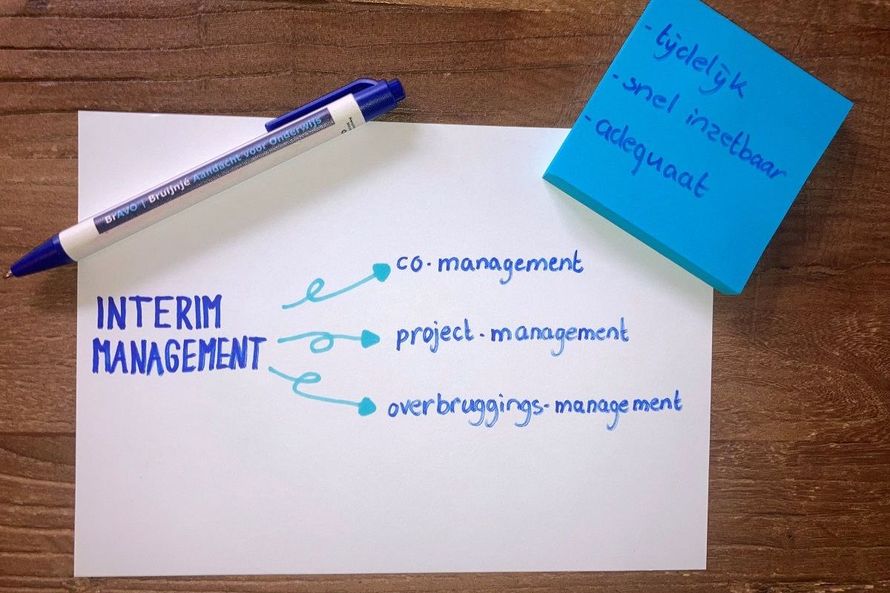 BrAVO | Bruijnjé Aandacht voor Onderwijs
- tijdelijk
- snel inzetbaar
- adequaat
INTERIM
MANAGEMENT
co-management
project-management
overbruggings-management